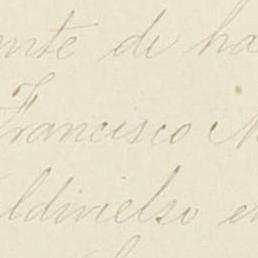 ente di ha
Francisco M
aldivielso en